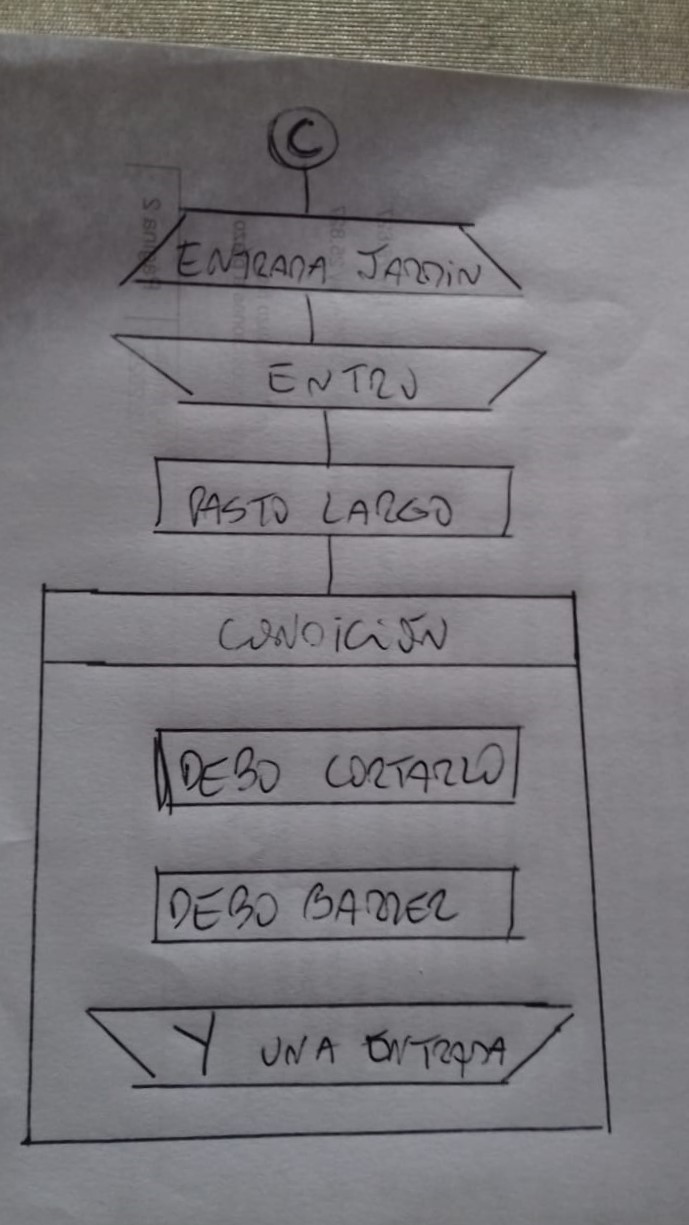 C
ENTRADA JARDIN
ENTRO
PASTO LARGO
CONDICIÓN
DEBO CORTARLO
DEBO BARRER
Y UNA ENTRADA
Página 2